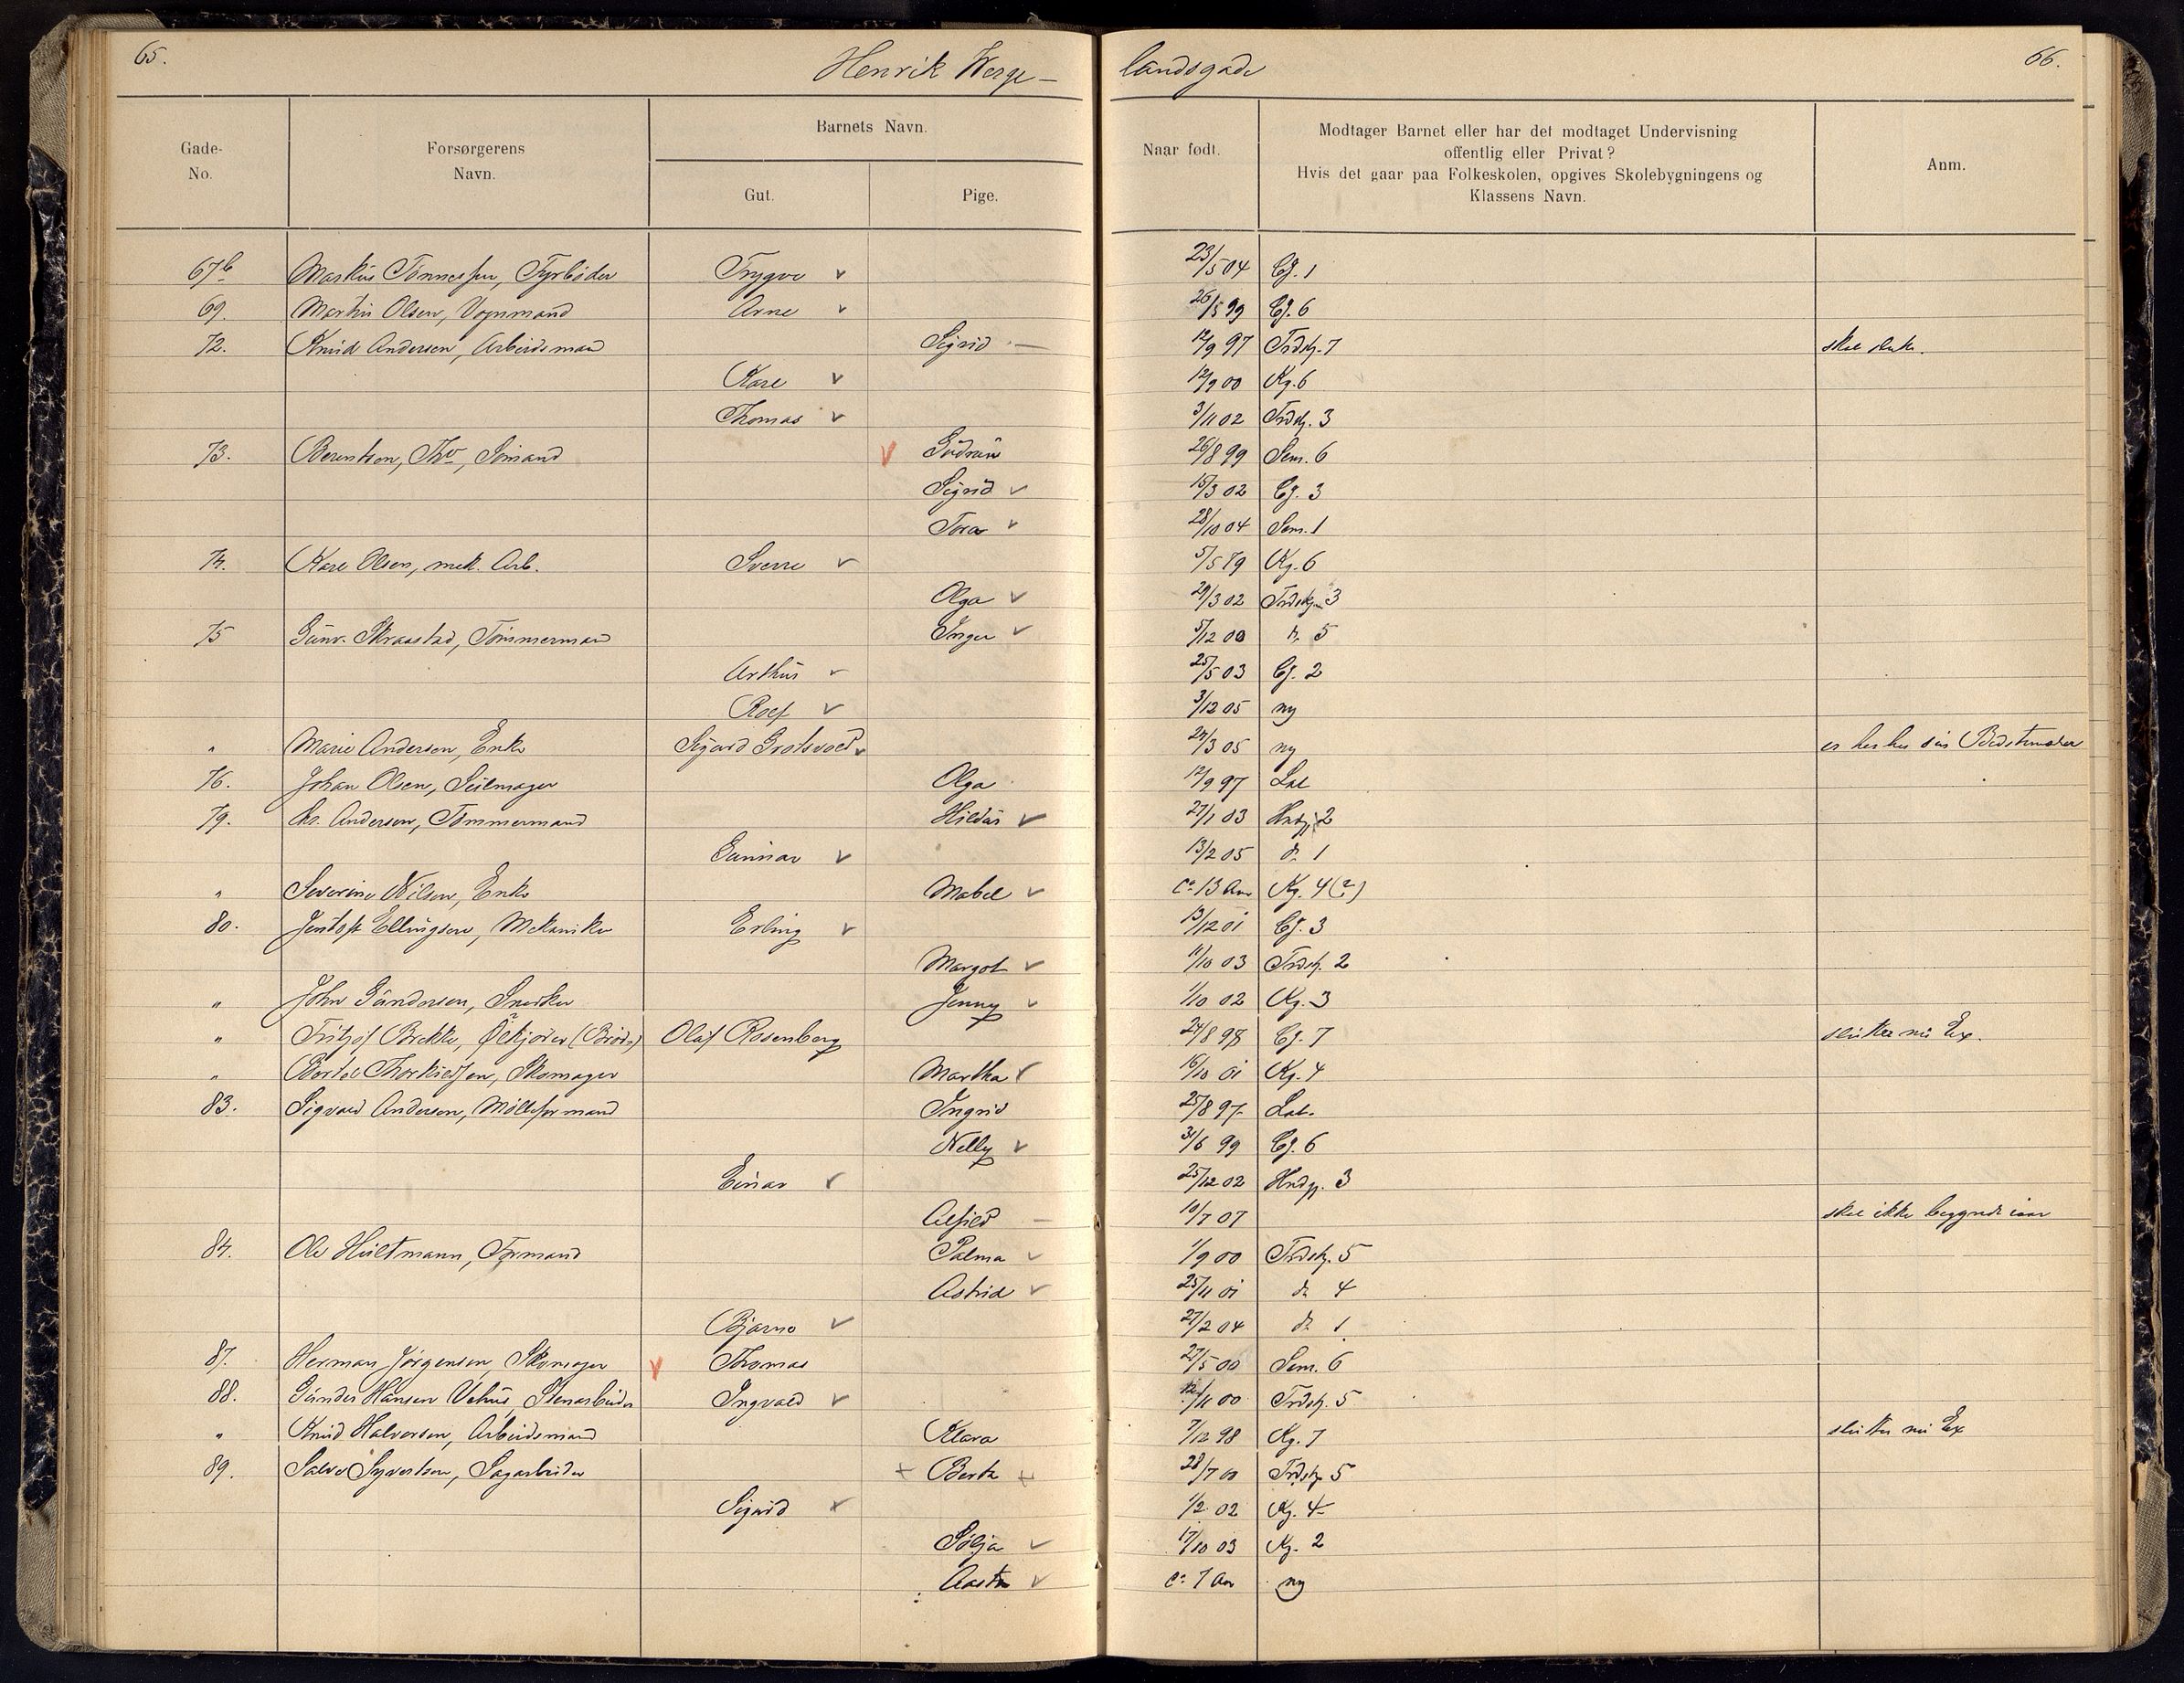 65.
Henrik Werge-
landsgade
66.
Gade-No.
Forsørgerens Navn.
Barnets Navn.
Gut.
Pige.
Naar født.
Modtager Barnet eller har det modtaget Undervisning
offentlig eller Privat?
Hvis det gaar paa Folkeskolen, opgives Skolebygningens og
Klassens Navn.
Anm.
67b Markus Tønnessen, Fyrbøder Trygve v 23/5 04 Cg. 1
69. Martin Olsen, Vognmand Arne v 26/5 99 Cg. 6
72. Knud Andersen, Arbeidsmand Sigrid — 12/9 97 Trdstg. 7 skal slutte.
Kare v 12/9 00 Kg. 6
Thomas v 3/11 02 Trdstg. 3
73. Berentsen, Thv, Sømand v Gudrun 26/8 99 Sem. 6
Sigrid v 15/3 02 Cg. 3
Tora v 28/10 04 Sem. 1
74. Karl Olsen, mek. Arb. Sverre v 5/5 89 Kg. 6
Olga v 29/3 02 Trdstg. 3
75 Gunv. Skraastad, Tømmermand Inger v 5/12 00 do 5
Arthur v 25/5 03 Cg. 2
Rolf v 3/12 05 ny
" Marie Andersen, Enke Sigurd Grotsvold v 24/3 05 ny er her hos sin Bedstemoder
76. Johan Olsen, Seilmager Olga 12/9 97 Lat
79. Chr. Andersen, Tømmermand Hildur v 27/1 03 Hndg. 2
Gunnar v 13/2 05 do 1
" Severine Nilsen, Enke Mabel v ca 13 Aar Kg. 4 (?)
80. Ellingsen, Mekaniker Erling v 13/12 01 Cg. 3
Margot v 11/10 03 Trdstg. 2
" John Gundersen, Snedker Jenny v 1/10 02 Kg. 3
" Fritjof Brekke, Ølkjører (Broder) Olaf Rosenberg 24/8 98 Cg. 7 slutter nu Ex.
" Bertel Thorkildsen, Skomager Martha v 16/10 01 Kg. 4
83. Sigvald Andersen, Mølleformand Ingrid 25/8 97 Lat.
Nelly v 31/6 99 Cg. 6
Einar v 25/12 02 Hndg. 3
Alfild — 10/7 07 skal ikke begynde iaar
84. Ole Hultmann, Formand Palma v 1/9 00 Trdstg. 5
Astrid v 25/11 01 do 4
Bjarne v 27/2 04 do 1
87. Herman Jørgensen, Skomager v Thomas 27/5 00 Sem. 6
88. Gunder Hansen Vehus, Stenarbeider Ingvald v 12/11 00 Trdstg. 5
" Knud Halvorsen, Arbeidsmand Klara 7/12 98 Kg. 7 slutter nu Ex
89. Salve Syvertsen, Sagarbeider + Berta + 28/7 00 Trdstg. 5
Sigurd + 1/2 02 Kg. 4
Solja v 17/10 03 Kg. 2
Aasta v ca 7 Aar ny